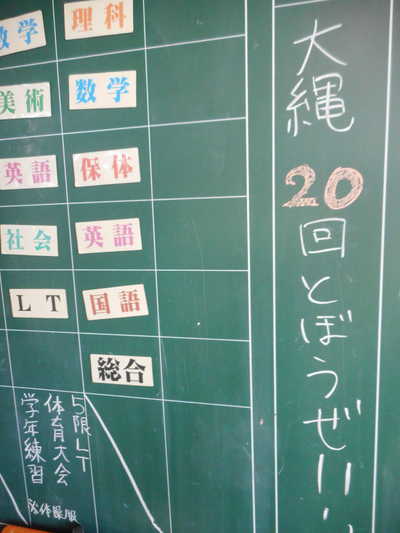 大縄 20回とぼうぜ!!
理科
数学
保体
英語
国語
総合
数学
美術
英語
社会
LT
5限LT
体育大会
学年練習
体操服